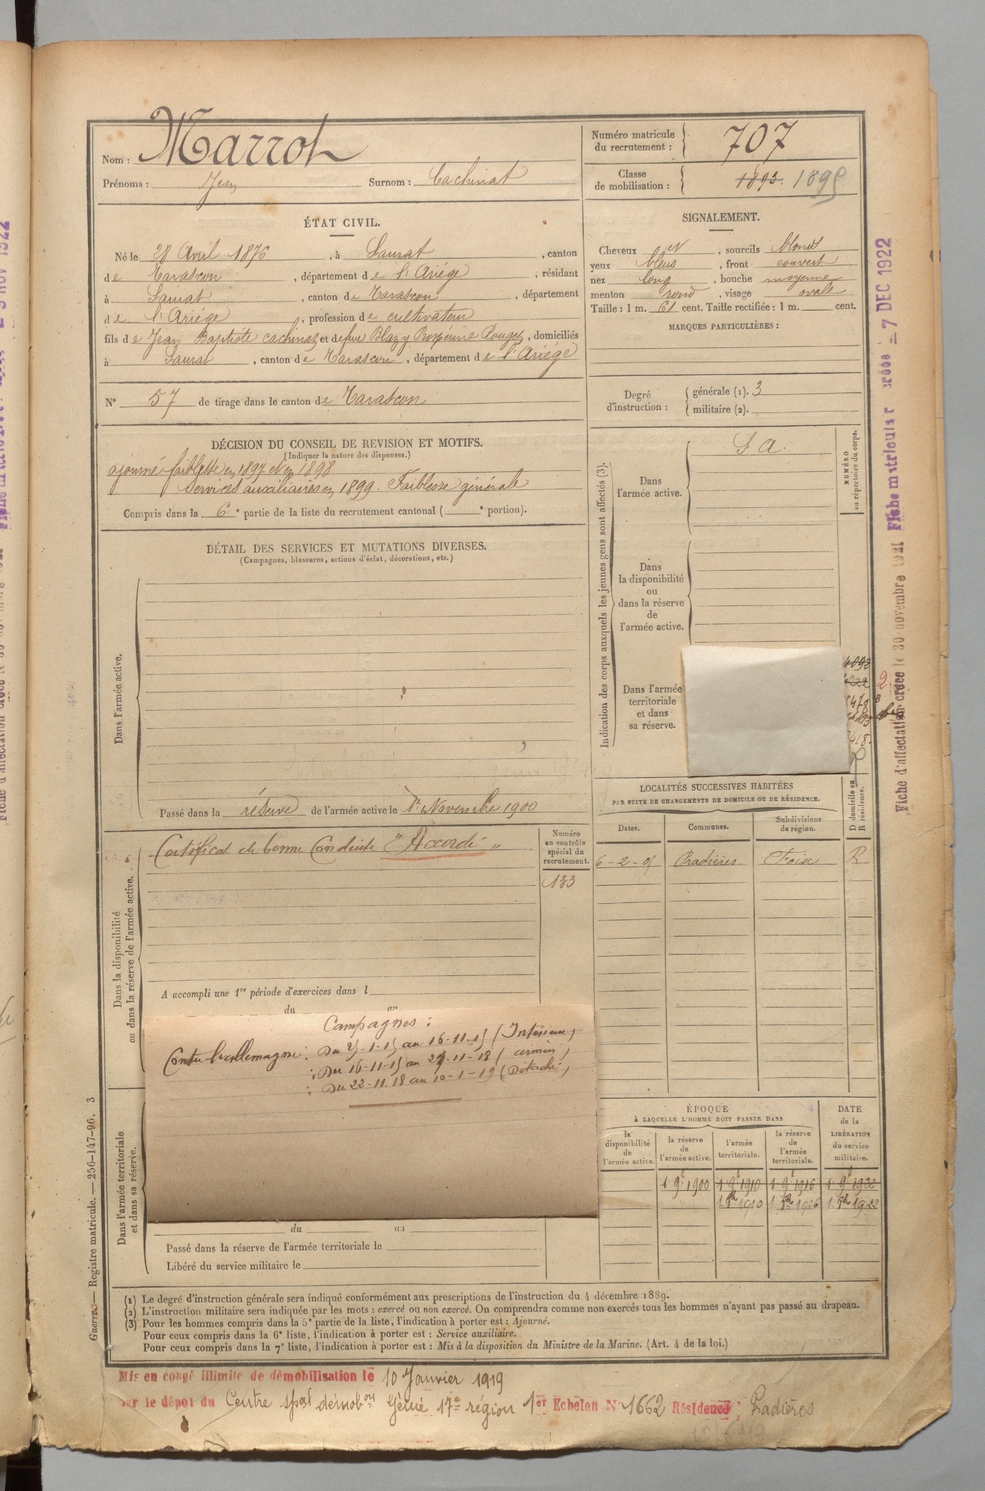 Nom : Marrot
Prénoms : Jean Surnom : Cachinat
Numéro matricule du recrutement : 707
Classe de mobilisation : 1893. 1895
ÉTAT CIVIL.
Né le 28 Avril 1876, à Saurat, canton
de Tarascon, département de l'Ariége, résidant
à Saurat, canton de Tarascon, département
de l'Ariége, profession de cultivateur
fils de Jean Baptiste cachinat et de feue Blazy Rouget, domiciliés
à Saurat, canton de Tarascon, département de l'Ariége
N° 57 de tirage dans le canton de Tarascon
SIGNALEMENT.
Cheveux et, sourcils blond
yeux bleus, front couvert
nez long, bouche moyenne
menton rond, visage ovale
Taille : 1 m. 61 cent. Taille rectifiée : 1 m. cent.
MARQUES PARTICULIÈRES :
Degré d'instruction : générale (1). 3
militaire (2).
DÉCISION DU CONSEIL DE REVISION ET MOTIFS.
(Indiquer la nature des dispenses.)
ajourné faiblesse en 1897 et en 1898
Services auxiliaires en 1899. Faiblesse générale
Compris dans la 6e partie de la liste du recrutement cantonal ( e portion).
DÉTAIL DES SERVICES ET MUTATIONS DIVERSES.
(Campagnes, blessures, actions d'éclat, décorations, etc.)
Dans l'armée active.
Passé dans la réserve de l'armée active le 1er Novembre 1900
Indication des corps auxquels les jeunes gens sont affectés (3).
Dans l'armée active.
S A.
NUMÉRO au répertoire du corps.
Dans la disponibilité ou dans la réserve de l'armée active.
Dans l'armée territoriale et dans sa réserve.
Dans la disponibilité ou dans la réserve de l'armée active.
Certificat de bonne Conduite "Accordé"
Numéro au contrôle spécial du recrutement.
133
A accompli une 1re période d'exercices dans l
du au
LOCALITÉS SUCCESSIVES HABITÉES
PAR SUITE DE CHANGEMENTS DE DOMICILE OU DE RÉSIDENCE.
Dates. Communes. Subdivisions de région. D domicile ou R résidence.
6-2-05 Pradières Foix R
Campagnes :
Contre l'allemagne : Du 25-1-15 au 16-11-15 (Intérieur)
: Du 16-11-15 au 21-11-18 (armées)
: Du 22-11-18 au 10-1-19 (Détaché)
Dans l'armée territoriale et dans sa réserve.
du au
Passé dans la réserve de l'armée territoriale le
Libéré du service militaire le
ÉPOQUE
À LAQUELLE L'HOMME DOIT PASSER DANS
la disponibilité de l'armée active. la réserve de l'armée active. l'armée territoriale. la réserve de l'armée territoriale.
DATE de la LIBÉRATION du service militaire.
1 9e 1900 1 9e 1910 1 9e 1916 1 9e 1922
1 8bre 1910 1 8bre 1916 1 8bre 1922
(1) Le degré d'instruction générale sera indiqué conformément aux prescriptions de l'instruction du 4 décembre 1889.
(2) L'instruction militaire sera indiquée par les mots : exercé ou non exercé. On comprendra comme non exercés tous les hommes n'ayant pas passé au drapeau.
(3) Pour les hommes compris dans la 5e partie de la liste, l'indication à porter est : Ajourné.
Pour ceux compris dans la 6e liste, l'indication à porter est : Service auxiliaire.
Pour ceux compris dans la 7e liste, l'indication à porter est : Mis à la disposition du Ministre de la Marine. (Art. 4 de la loi.)
Guerre. — Registre matricule. — 256-147-96. 3
Mis en congé illimité de démobilisation le 10 Janvier 1919
sur le dépot du Centre spal démobon Génie 17e région 1er Echelon N° 1662 Résidence : Pradières
Fiche d'affectation créée le 30 novembre 1921
Fiche matricule créée le -7 DEC 1922